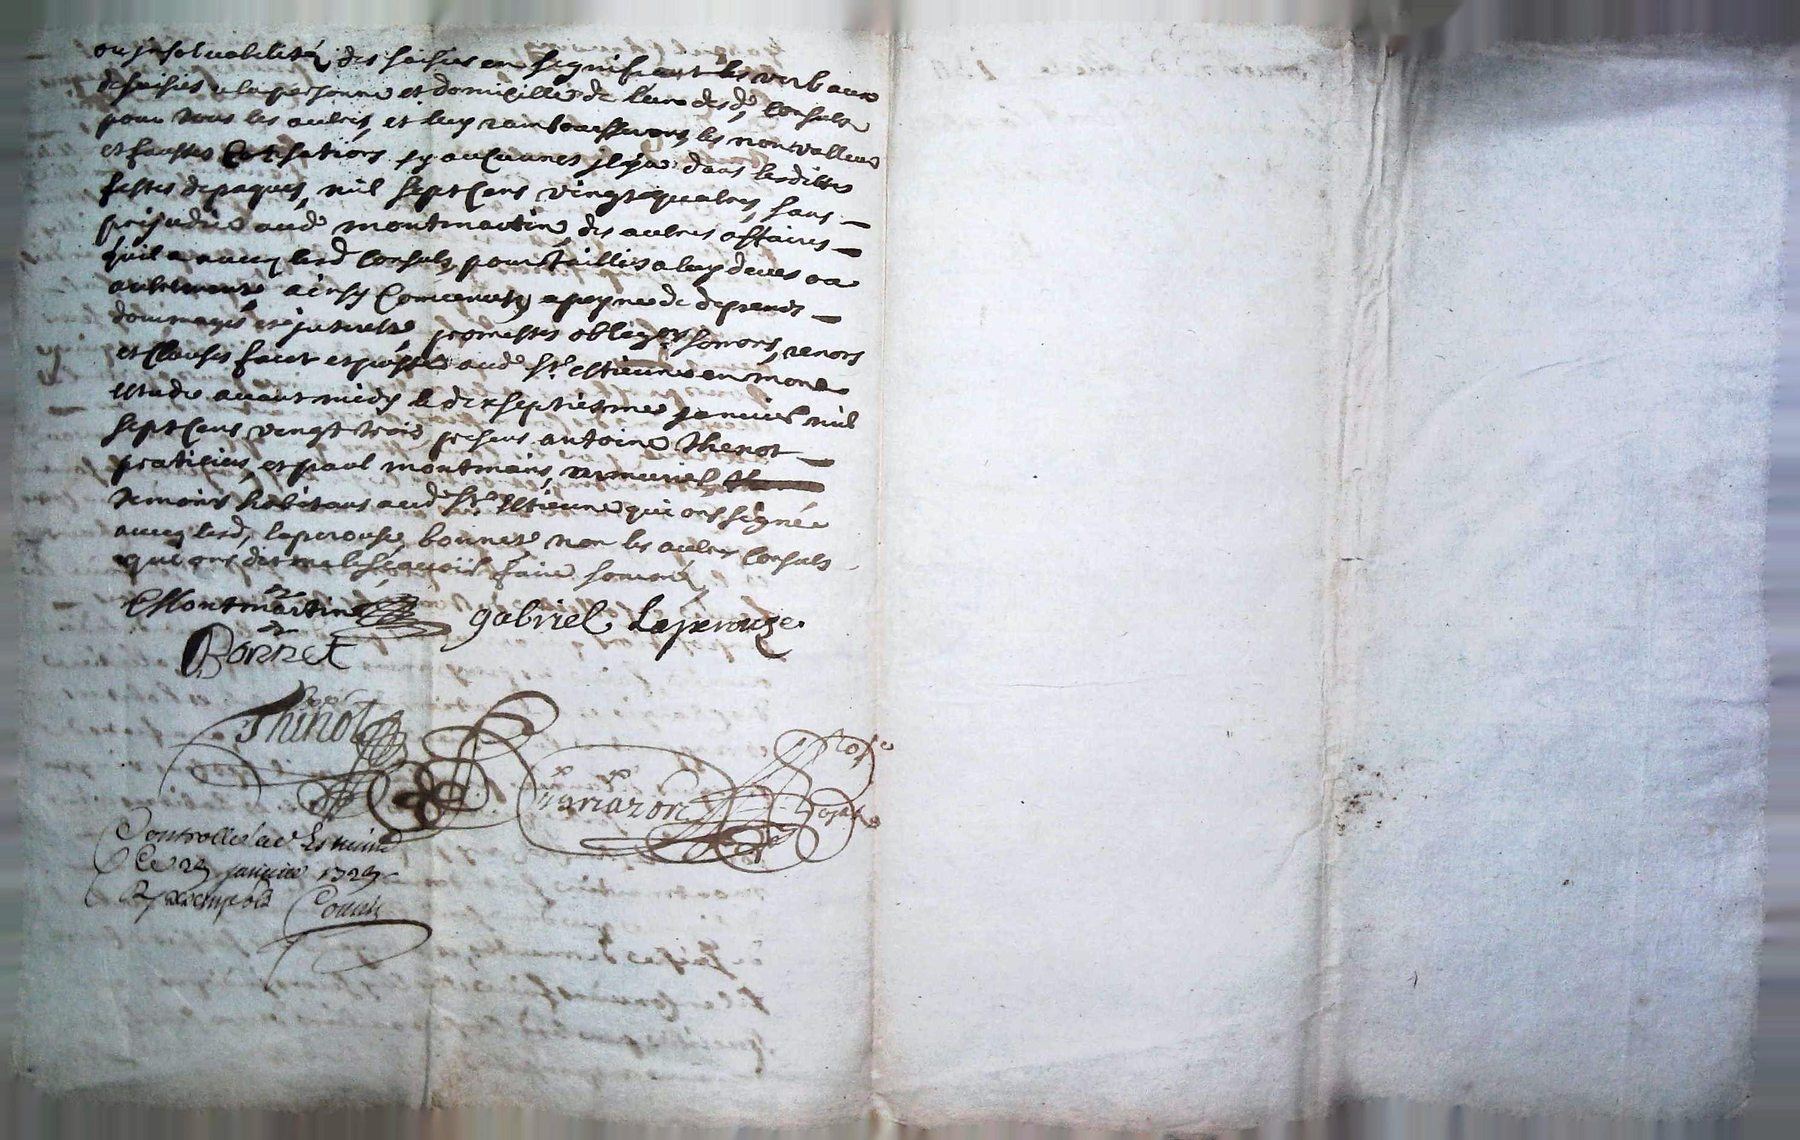 ou insoluabilité des saisies en signifiant les verbaux
de saisies a la personne et domicille de l'un desd consuls
pour tous les autres et luy rambourserons les nonvalleurs
et fausses Cothisations sy aucunes il y a dans lesdittes
festes de paques mil sept cens vingt quatre, sans
prejudice aud montmartin des autres affaires
qu'il a avecq lesd Consuls pour tailles a luy deues ou
autrement ainsy Convenu a peyne de depens
dommages interets promettes obliges soumons, renons
et Clauses fait et passé aud St Estienne en mon
estude avant midy le dixseptiesme janvier mil
sept cens vingt trois presens antoine thenot
praticien, et paul montmain, armurier
temoins habitans aud St Estienne qui ons signé
avecq lesd, laperouse bonnet non les autres Consuls
qui ons dit ne le scavoir faire sommé
Montmartin gabriel Laperouze
Bonnet
Thinot
Controllé a St Estienne
Ce 29 janvier 1723